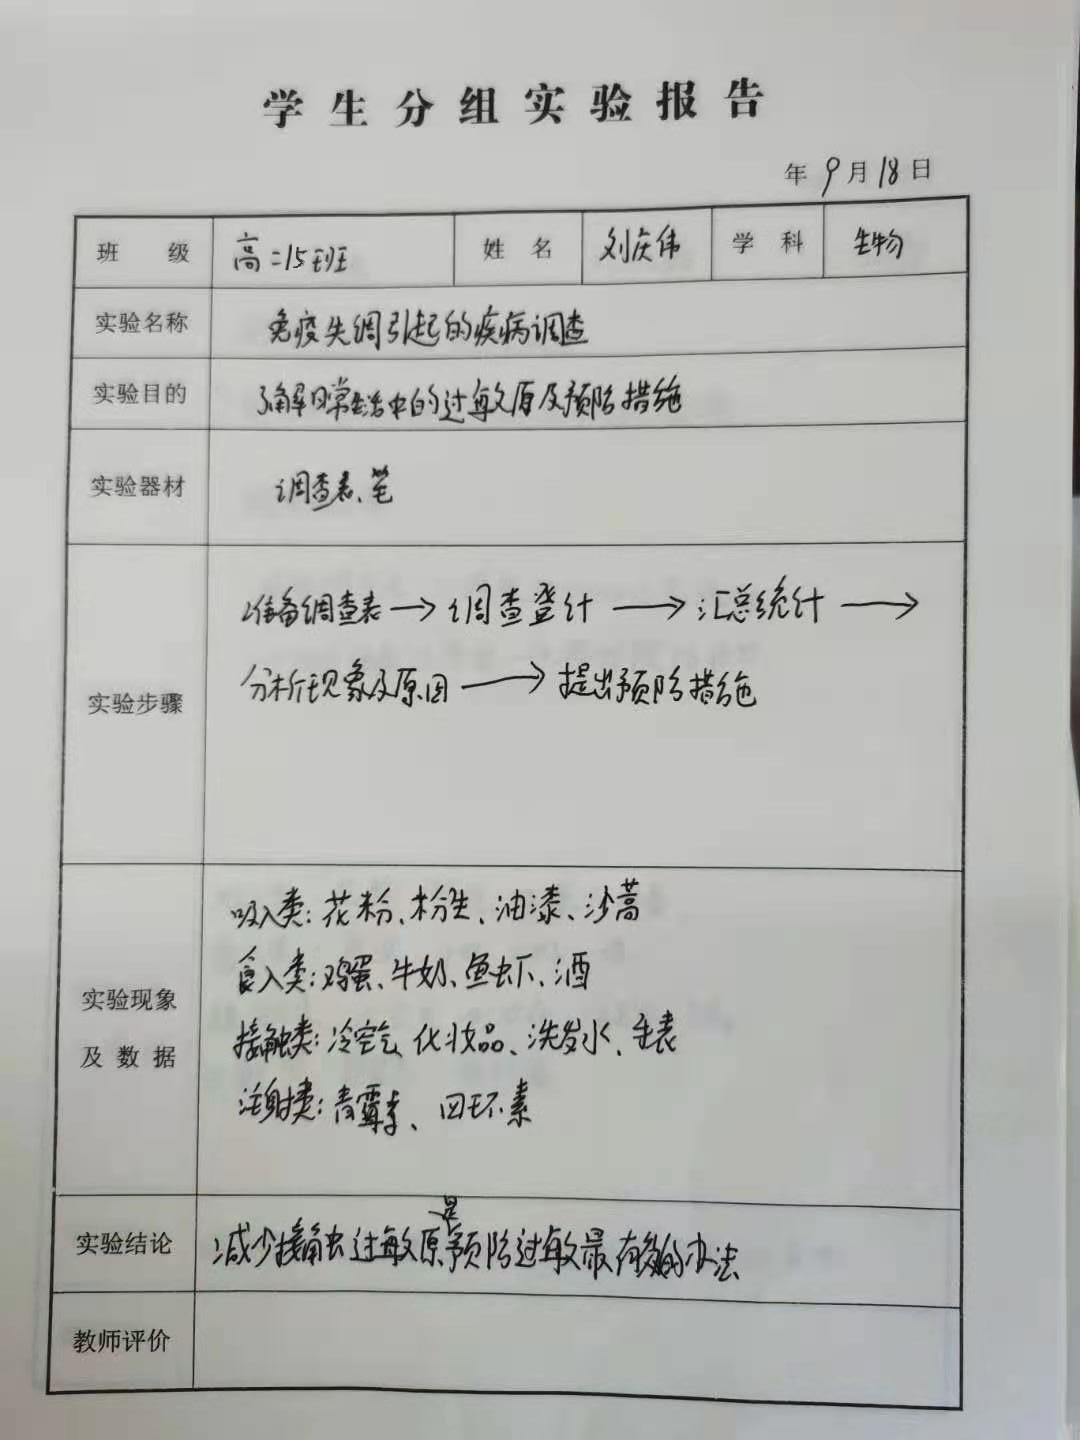 学生分组实验报告
年9月18日
班 级 高二15班 姓 名 刘庆伟 学 科 生物
实验名称 免疫失调引起的疾病调查
实验目的 了解日常生活中的过敏原及预防措施
实验器材 调查表、笔
准备调查表→调查登计→汇总统计→
实验步骤 分析现象及原因→提出预防措施
吸入类:花粉、粉尘、油漆、沙蒿
食入类:鸡蛋、牛奶、鱼虾、酒
实验现象
及数据 接触类:冷空气、化妆品、洗发水、手表
注射类:青霉素、四环素
实验结论 减少接触过敏原是预防过敏最有效的办法
教师评价